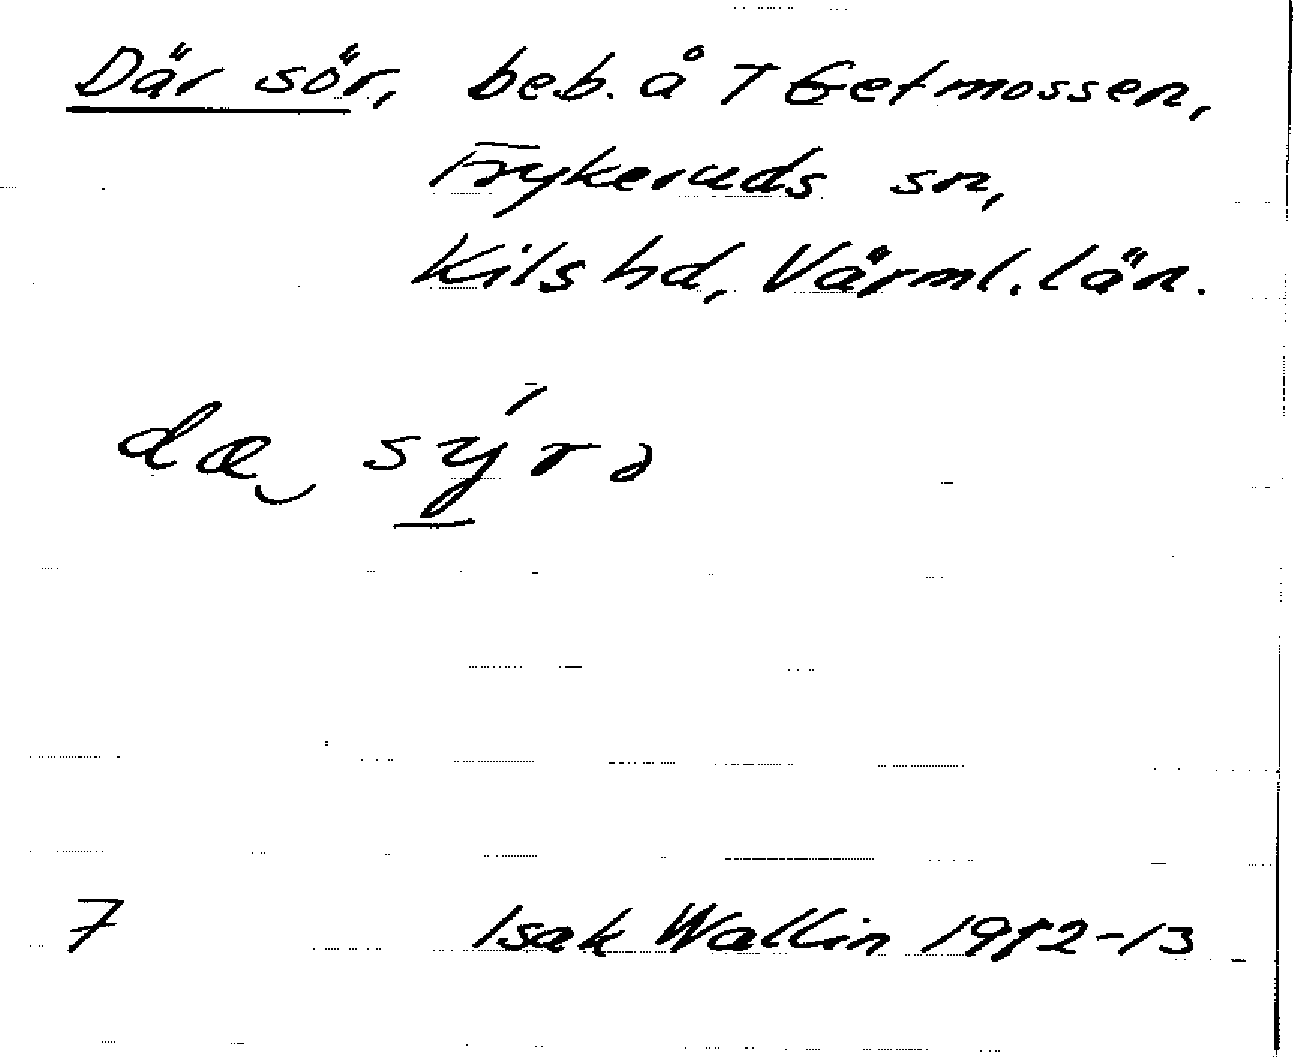 Där sör, beb. å T Getmossen,
Frykeruds sn,
Kils hd, Värml. län.
dæ sýrə
7 Isak Wallin 1912-13